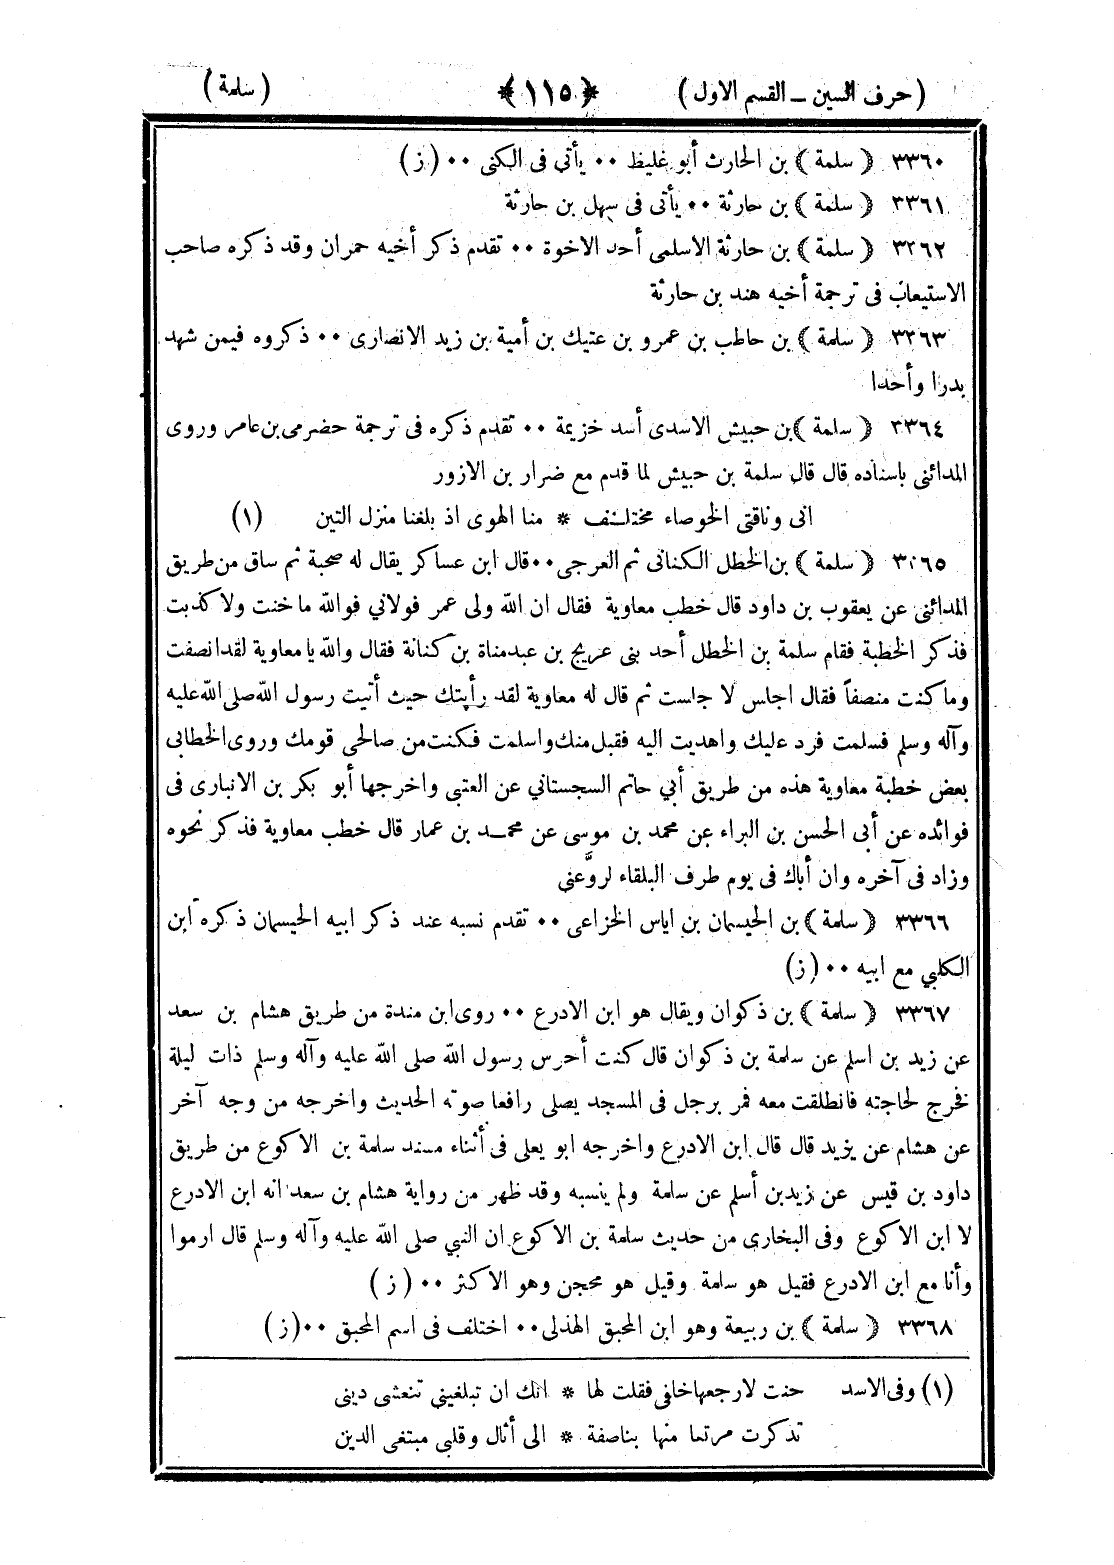 (حرف السين ـ القسم الاول) ﴿١١٥﴾ (سلمة)
٣٣٦٠ ﴿سلمة﴾ بن الحارث أبو غليظ ٠٠ يأتى فى الكنى ٠٠ (ز)
٣٣٦١ ﴿سلمة﴾ بن حارثة ٠٠ يأتى فى سهل بن حارثة
٣٣٦٢ ﴿سلمة﴾ بن حارثة الاسلمى أحد الاخوة ٠٠ تقدم ذكر أخيه حمران وقد ذكره صاحب
الاستيعاب فى ترجمة أخيه هند بن حارثة
٣٣٦٣ ﴿سلمة﴾ بن حاطب بن عمرو بن عتيك بن أمية بن زيد الانصارى ٠٠ ذكروه فيمن شهد
بدرا وأحدا
٣٣٦٤ ﴿سلمة﴾ بن حبيش الاسدى أسد خزيمة ٠٠ تقدم ذكره فى ترجمة حضرمى بن عامر وروى
المدائنى باسناده قال قال سلمة بن حبيش لما قدم مع ضرار بن الازور
انى وناقتى الخوصاء مختلف * منا الهوى اذ بلغنا منزل التين (١)
٣٣٦٥ ﴿سلمة﴾ بن الخطل الكنانى ثم العرجى ٠٠ قال ابن عساكر يقال له صحبة ثم ساق من طريق
المدائنى عن يعقوب بن داود قال خطب معاوية فقال ان الله ولى عمر فولاني فوالله ما خنت ولا كذبت
فذكر الخطبة فقام سلمة بن الخطل أحد بنى عريج بن عبدمناة بن كنانة فقال والله يا معاوية لقد انصفت
وما كنت منصفاً فقال اجلس لا جلست ثم قال له معاوية لقد رأيتك حيث أتيت رسول الله صلى الله عليه
وآله وسلم فسلمت فرد عليك واهديت اليه فقبل منك واسلمت فكنت من صالحى قومك وروى الخطابى
بعض خطبة معاوية هذه من طريق أبي حاتم السجستاني عن العتبى واخرجها أبو بكر بن الانبارى فى
فوائده عن أبى الحسن بن البراء عن محمد بن موسى عن محمد بن عمار قال خطب معاوية فذكر نحوه
وزاد فى آخره وان أباك فى يوم طرف البلقاء لروَّعنى
٣٣٦٦ ﴿سلمة﴾ بن الحيسمان بن اياس الخزاعى ٠٠ تقدم نسبه عند ذكر ابيه الحيسمان ذكره ابن
الكلبي مع ابيه ٠٠ (ز)
٣٣٦٧ ﴿سلمة﴾ بن ذكوان ويقال هو ابن الادرع ٠٠ روى ابن مندة من طريق هشام بن سعد
عن زيد بن اسلم عن سلمة بن ذكوان قال كنت أحرس رسول الله صلى الله عليه وآله وسلم ذات ليلة
فخرج لحاجته فانطلقت معه فمر برجل فى المسجد يصلى رافعا صوته الحديث واخرجه من وجه آخر
عن هشام عن يزيد قال قال ابن الادرع واخرجه ابو يعلى فى أثناء مسند سلمة بن الاكوع من طريق
داود بن قيس عن زيد بن أسلم عن سلمة ولم ينسبه وقد ظهر من رواية هشام بن سعد انه ابن الادرع
لا ابن الاكوع وفى البخارى من حديث سلمة بن الاكوع ان النبي صلى الله عليه وآله وسلم قال ارموا
وأنا مع ابن الادرع فقيل هو سلمة وقيل هو محجن وهو الاكثر ٠٠ (ز)
٣٣٦٨ ﴿سلمة﴾ بن ربيعة وهو ابن المحبق الهذلى ٠٠ اختلف فى اسم المحبق ٠٠ (ز)
(١) وفى الاسد حنت لارجعها خلفى فقلت لها * انك ان تبلغيني تنعشى دينى
تذكرت مرتعا منها بناصفة * الى أثال وقلبى مبتغى الدين